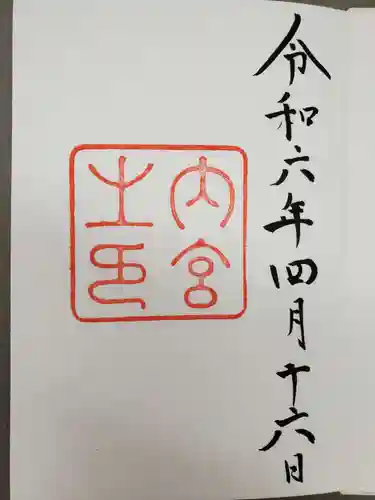 令和六年四月十六日
内宮
之印